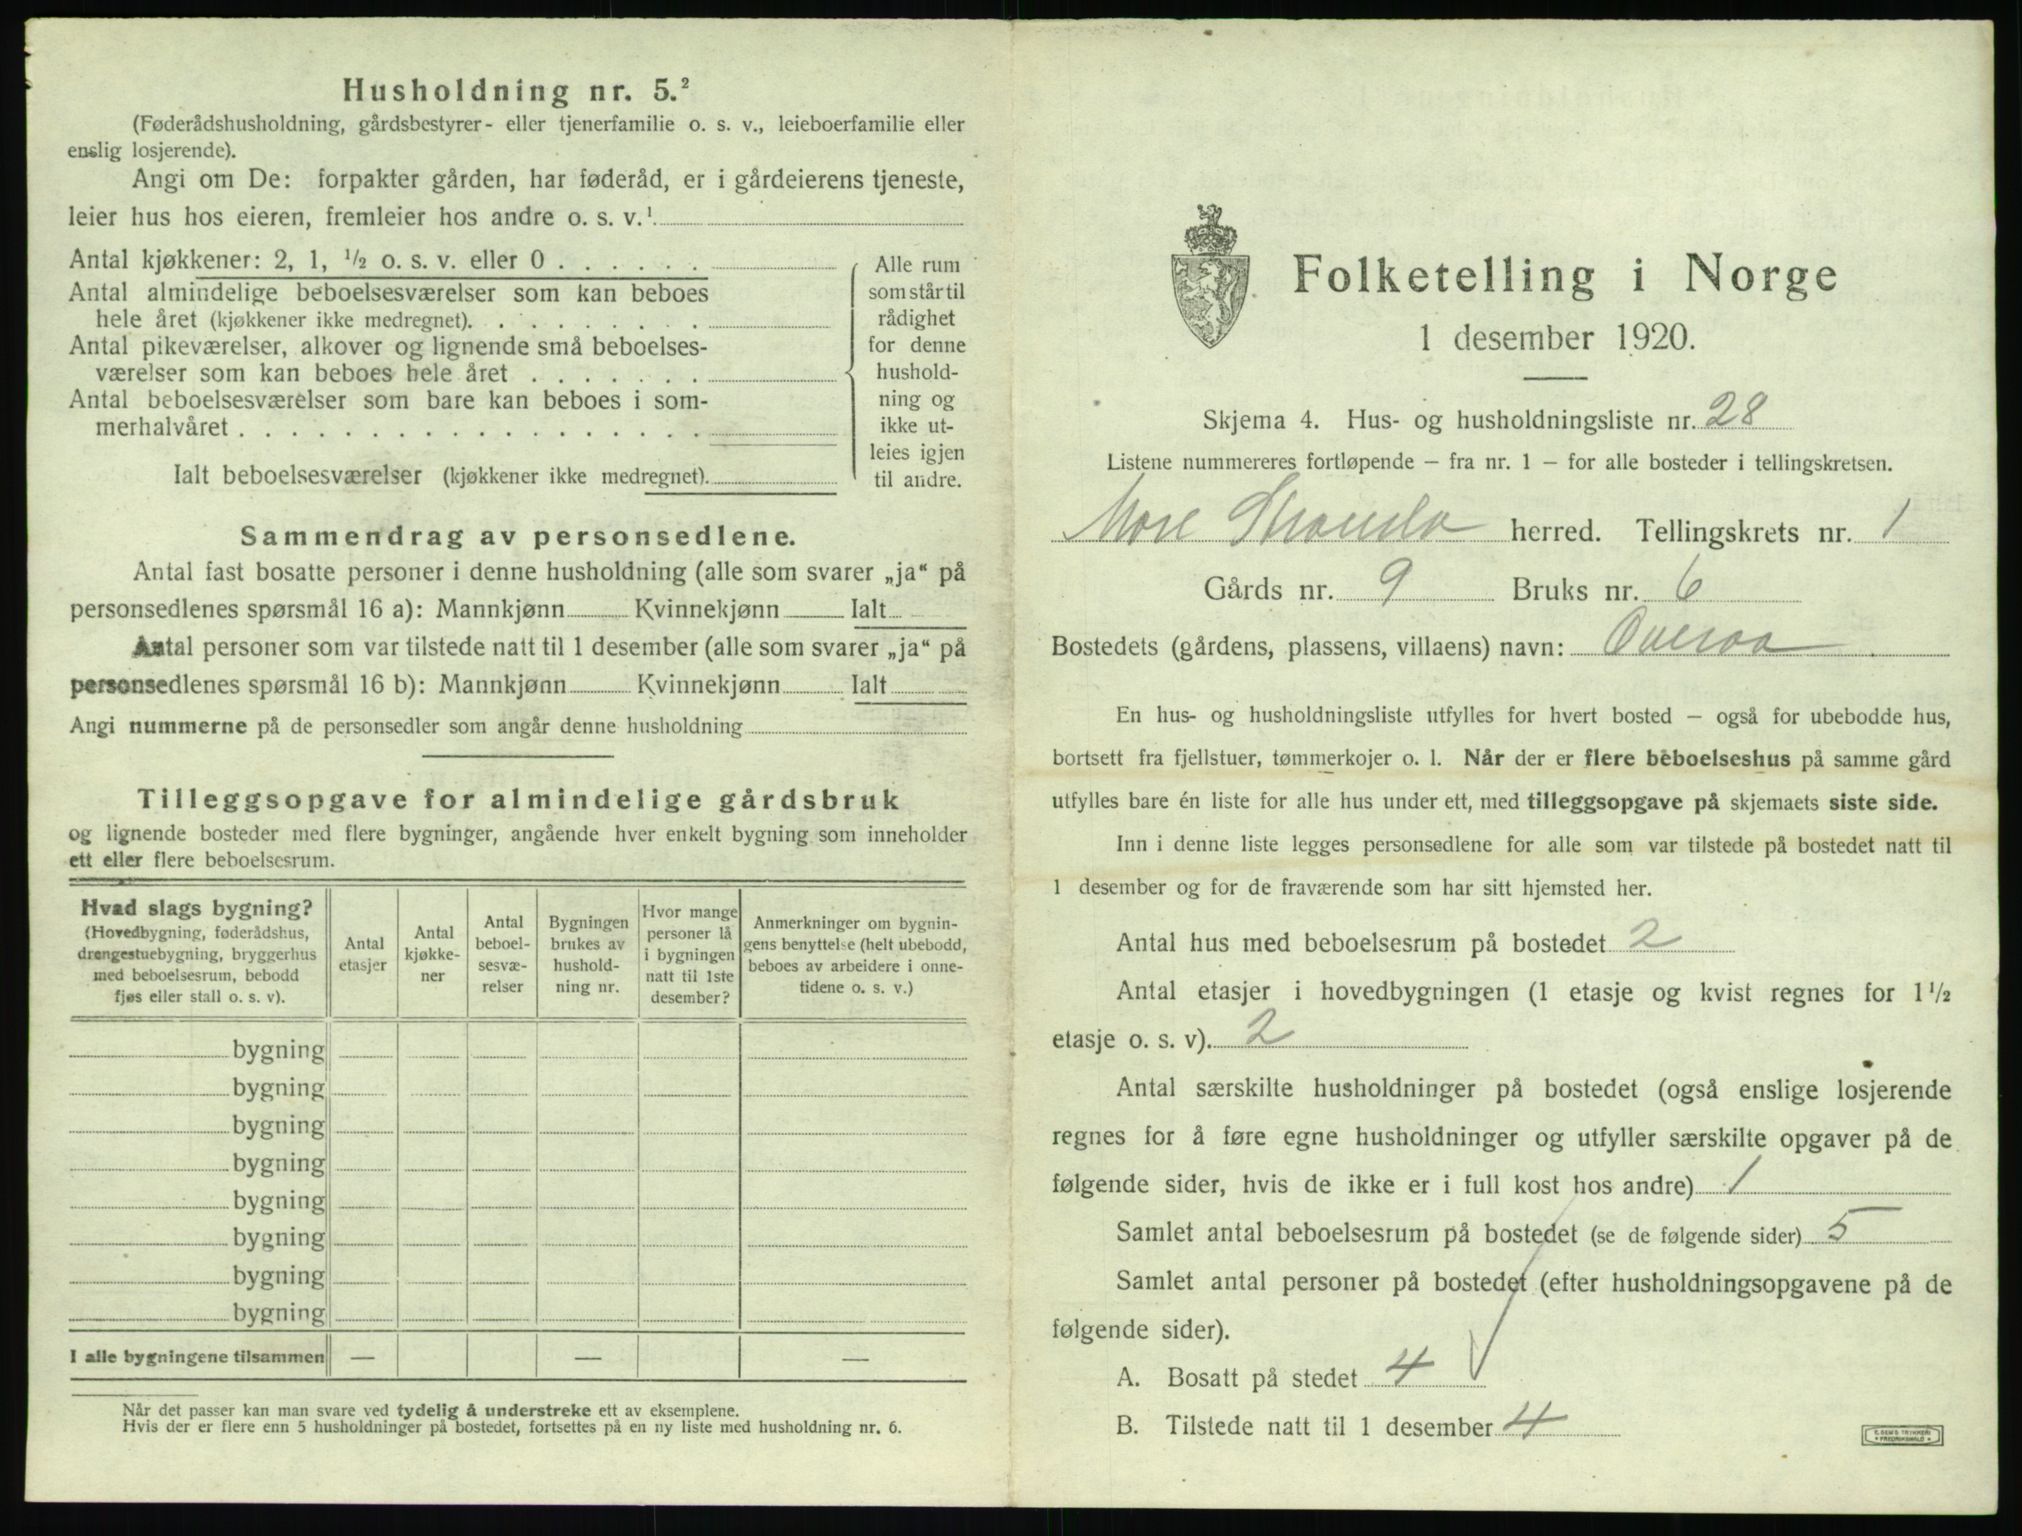 Husholdning nr. 5.²
(Føderådshusholdning, gårdsbestyrer- eller tjenerfamilie o. s. v., leieboerfamilie eller
enslig losjerende).
Angi om De: forpakter gården, har føderåd, er i gårdeierens tjeneste,
leier hus hos eieren, fremleier hos andre o. s. v.¹
Antal kjøkkener: 2, 1, ½ o. s. v. eller 0 . . . . . .
Antal almindelige beboelsesværelser som kan beboes
hele året (kjøkkener ikke medregnet). . . . . . . . .
Antal pikeværelser, alkover og lignende små beboelses-
værelser som kan beboes hele året . . . . . . .
Antal beboelsesværelser som bare kan beboes i som-
merhalvåret . . . . . . . . . . . . . . . . . .
Ialt beboelsesværelser (kjøkkener ikke medregnet).
Alle rum
som står til
rådighet
for denne
hushold-
ning og
ikke ut-
leies igjen
til andre.
Sammendrag av personsedlene.
Antal fast bosatte personer i denne husholdning (alle som svarer „ja“ på
personsedlenes spørsmål 16 a): Mannkjønn Kvinnekjønn Ialt
Antal personer som var tilstede natt til 1 desember (alle som svarer „ja“ på
personsedlenes spørsmål 16 b): Mannkjønn Kvinnekjønn Ialt
Angi nummerne på de personsedler som angår denne husholdning
Tilleggsopgave for almindelige gårdsbruk
og lignende bosteder med flere bygninger, angående hver enkelt bygning som inneholder
ett eller flere beboelsesrum.
Hvad slags bygning?
(Hovedbygning, føderådshus,
drengestuebygning, bryggerhus
med beboelsesrum, bebodd
fjøs eller stall o. s. v).
Antal
etasjer
Antal
kjøkke-
ner
Antal
beboel-
sesvæ-
relser
Bygningen
brukes av
hushold-
ning nr.
Hvor mange
personer lå
i bygningen
natt til 1ste
desember?
Anmerkninger om bygnin-
gens benyttelse (helt ubebodd,
beboes av arbeidere i onne-
tidene o. s. v.)
bygning
bygning
bygning
bygning
bygning
bygning
bygning
bygning
I alle bygningene tilsammen — — —
Når det passer kan man svare ved tydelig å understreke ett av eksemplene.
Hvis der er flere enn 5 husholdninger på bostedet, fortsettes på en ny liste med husholdning nr. 6.
Folketelling i Norge
1 desember 1920.
Skjema 4. Hus- og husholdningsliste nr. 28
Listene nummereres fortløpende – fra nr. 1 – for alle bosteder i tellingskretsen.
Møre Stranda herred. Tellingskrets nr. 1
Gårds nr. 9 Bruks nr. 6
Bostedets (gårdens, plassens, villaens) navn: Overaa
En hus- og husholdningsliste utfylles for hvert bosted – også for ubebodde hus,
bortsett fra fjellstuer, tømmerkojer o. l. Når der er flere beboelseshus på samme gård
utfylles bare én liste for alle hus under ett, med tilleggsopgave på skjemaets siste side.
Inn i denne liste legges personsedlene for alle som var tilstede på bostedet natt til
1 desember og for de fraværende som har sitt hjemsted her.
Antal hus med beboelsesrum på bostedet 2
Antal etasjer i hovedbygningen (1 etasje og kvist regnes for 1 ½
etasje o. s. v). 2
Antal særskilte husholdninger på bostedet (også enslige losjerende
regnes for å føre egne husholdninger og utfyller særskilte opgaver på de
følgende sider, hvis de ikke er i full kost hos andre) 1
Samlet antal beboelsesrum på bostedet (se de følgende sider) 5
Samlet antal personer på bostedet (efter husholdningsopgavene på de
følgende sider).
A. Bosatt på stedet 4
B. Tilstede natt til 1 desember 4